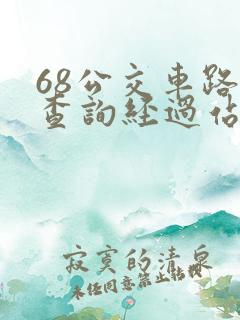 68公交車路
查詢經過佔
寂寞的清泉
未任同意禁止轉載